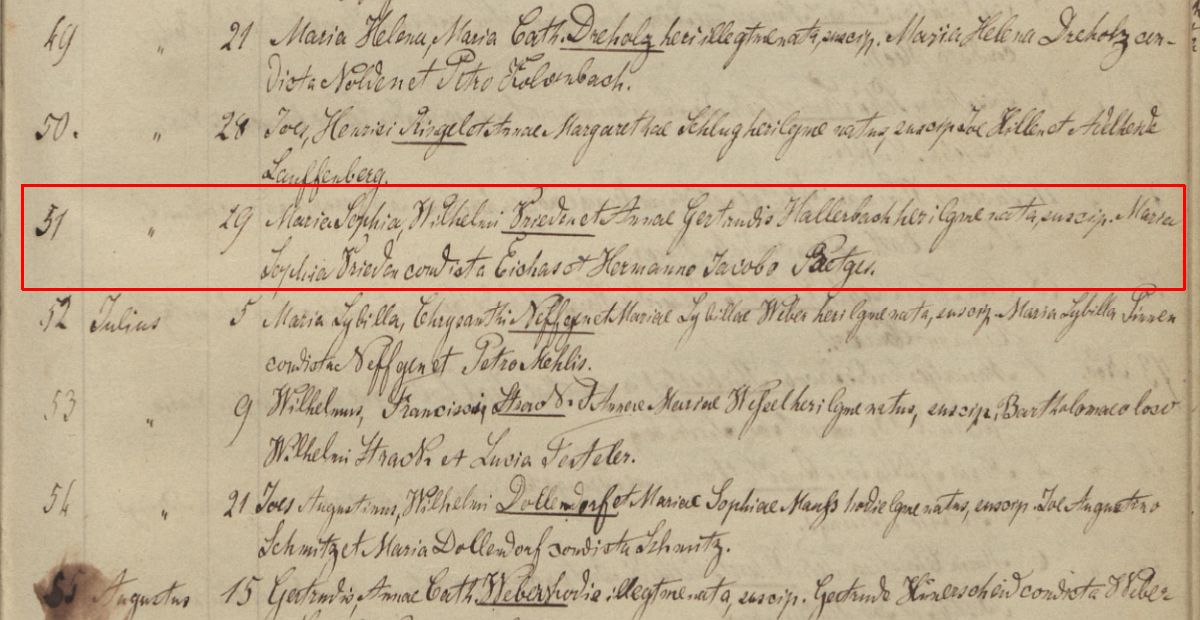 49 " 21 Maria Helena, Maria Cath. Dreholz heri illegtme nata, suscip. Maria Helena Dreholz con-
dicta Nolden et Petro Kolvenbach.
50. " 28 Joes, Henrici Ringel et Annae Margarethae Schlug heri lgme natus, suscip Joe Hillen et Adelheide
Lauffenberg.
51 " 29 Maria Sophia, Wilhelmi Vrieden et Annae Gertrudis Hallerbach heri lgme nata, suscip. Maria
Sophia Vrieden condicta Eichas et Hermanno Jacobo Paetges.
52 Julius 5 Maria Sybilla, Chrysanthi Neffgen et Mariae Sybillae Weber heri lgme nata, suscip. Maria Sybilla Pinnen
condicta Neffgen et Petro Mehlis.
53 " 9 Wilhelmus, Francisci Strack et Annae Mariae Wessel heri lgme natus, suscip. Bartholomaeo loco
Wilhelmi Strack et Lucia Festeler.
54 " 21 Joes Augustinus, Wilhelmi Dollendorf et Mariae Sophiae Manss hodie lgme natus, suscip. Joe Augustino
Schmitz et Maria Dollendorf condicta Schmitz.
55 Augustus 15 Gertrudis, Annae Cath. Weber hodie illegtme nata, suscip. Gertrude Hünerscheid condicta Weber